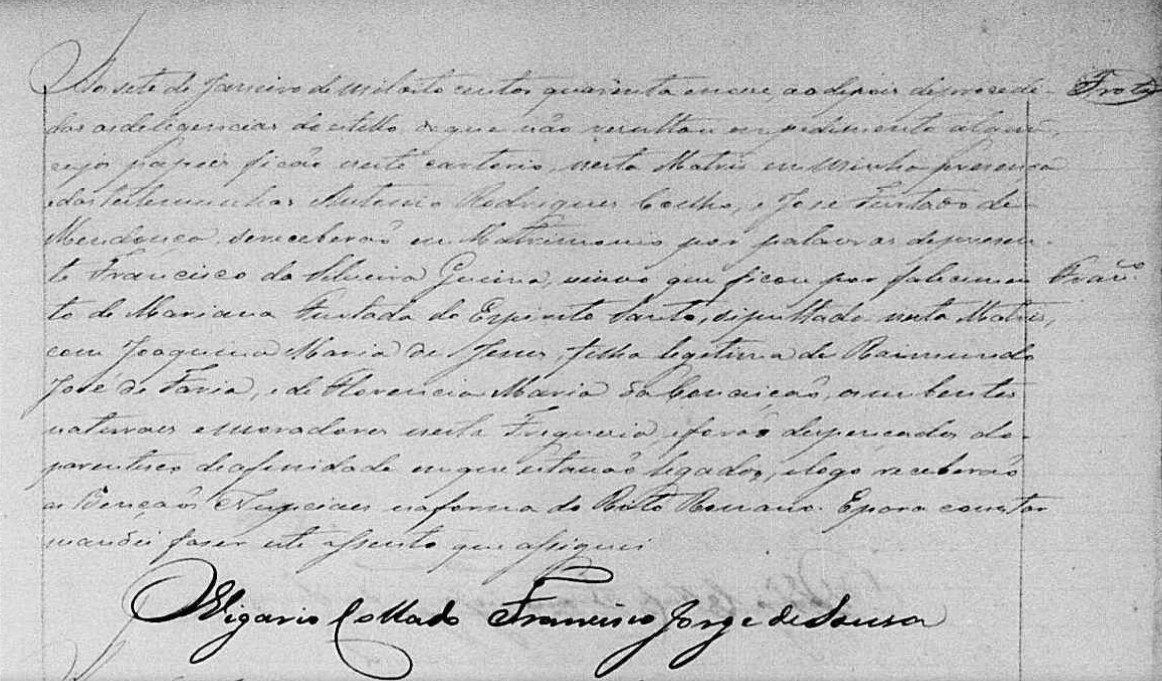 Ao sete de Janeiro de mil oito centos quarenta e nove, ao depois de procedi-
das as deligencias do estillo de que não resultou empedimento algum,
cujos papeis ficão neste cartorio, nesta Matris em minha presença
e das testemunhas Antonio Rodrigues Coelho, e José Furtado de
Mendonça, se receberão em Matrimonio por palavras de presen-
te Francisco da Silveira Gueira, viuvo que ficou por falecimen
to de Mariana Furtada do Espirito Santo, sipultada nesta Matris,
com Joaquina Maria de Jesus, filha legitima de Raimundo
José de Faria, e de Florencia Maria da Conceição, ambos
naturaes e moradores nesta Freguesia, e forão despençados do
parentesco de afinidade em que estavão ligados, e logo receberão
as Bençaõs Nupciaes na forma do Rito Romano. E para constar
mandei faser este assento que assignei
Vigario Collado Francisco Jorge de Sousa
Fran.co